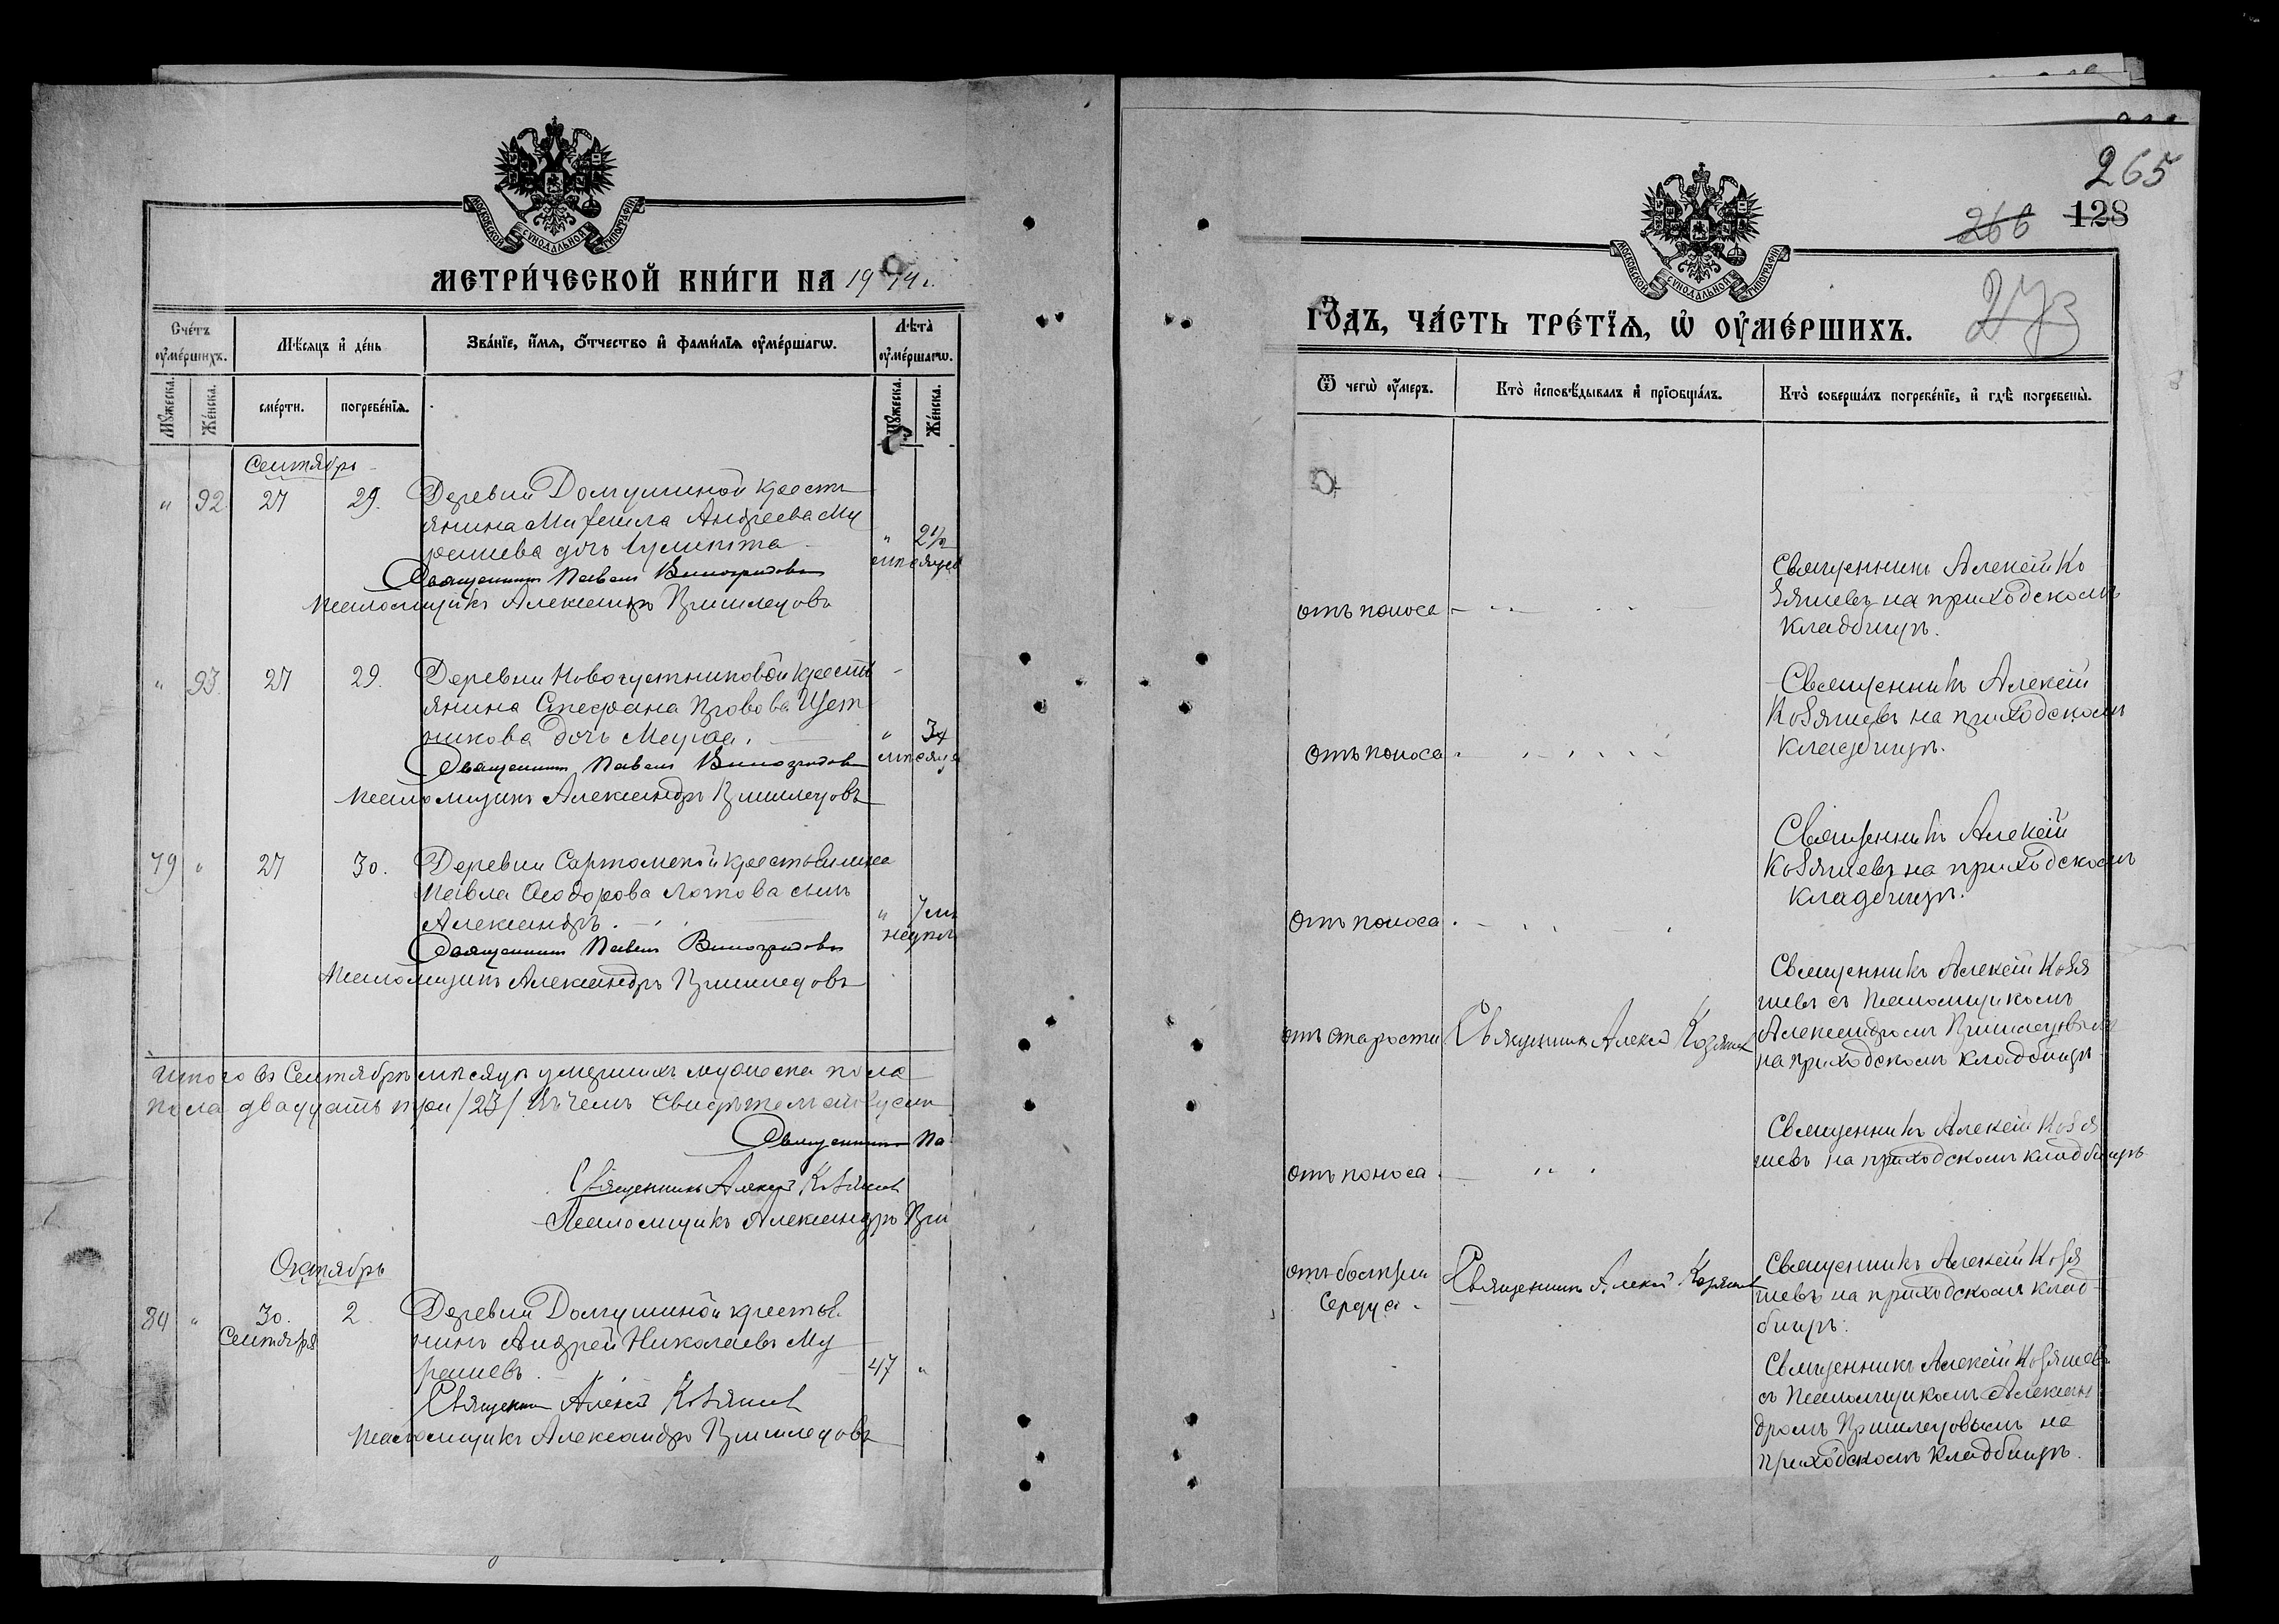 МЕТРИ́ЧЕСКОЙ КНИ́ГИ НА 1914 г.
Сче́тъ оу҆ме́ршихъ.
Мѣ́сяцъ и҆ де́нь
Зва́нїе, и҆́мѧ, ѻ҆́тчество и҆ фами́лїѧ оу҆ме́ршагѡ.
Лѣ́та оу҆ме́ршагѡ.
Мꙋ́жеска.
Же́нска.
сме́рти.
погребе́нїѧ.
Мꙋ́жеска.
Же́нска.
Сентябрь
" 92 27 29. Деревни Домушиной кресть
янина Михаила Андреева Му
рашева дочь " 2½
месяцев
Священник Павел Виноградов
Псаломщикъ Александръ Пришлецовъ
" 93. 27 29. Деревни кресть
янина Стефана Щет
никова дочь " 3
месяца
Священник Павел Виноградов
Псаломщикъ Александръ Пришлецовъ
79 " 27 30. Деревни крестьянина
Павла Ѳеодорова сынъ
Александръ. " 7
недель
Священник Павел Виноградов
Псаломщикъ Александръ Пришлецовъ
Итого въ Сентябрѣ мѣсяцѣ умершихъ мужеска пола
пола двадцать три /23/. Въ чемъ свидѣтельствуемъ
Священник Па
Священникъ Алексѣй Козяшев
Псаломщикъ Александръ При
Октябрь
80 " 30. Сентября 2. Деревни Домушиной крестья
нинъ Андрей Николаевъ Му
рашевъ. 47 "
Священник Алексѣй Козяшев
Псаломщикъ Александръ Пришлецовъ
265
266 128
273
ГО́ДЪ, ЧА́СТЬ ТРЕ́ТЇѦ, Ѡ҆ ОУ҆МЕ́РШИХЪ.
Ѿ чегѡ̀ оу҆́меръ.
Кто̀ и҆сповѣ́дывалъ и҆ прїѡбща́лъ.
Кто̀ соверша́лъ погребе́нїе, и҆ гдѣ̀ погребены̀.
отъ поноса
Священникъ Алексѣй Ко
зяшевъ на приходскомъ
кладбищѣ.
отъ поноса
Священникъ Алексѣй
Козяшевъ на приходскомъ
кладбищѣ.
отъ поноса
Священникъ Алексѣй
Козяшевъ на приходскомъ
кладбищѣ.
отъ старости Священникъ Алексѣй Козяшев
Священникъ Алексѣй Козя
шевъ съ Псаломщикомъ
Александромъ Пришлецовымъ
на приходскомъ кладбищѣ
отъ поноса
Священникъ Алексѣй Козя
шевъ на приходскомъ кладбищѣ
отъ болѣзни
сердца.
Священникъ Алексѣй Козяшев
Священникъ Алексѣй Козя
шевъ на приходскомъ клад
бищѣ.
Священникъ Алексѣй Козяшевъ
съ Псаломщикомъ Алексан
дромъ Пришлецовымъ на
приходскомъ кладбищѣ.